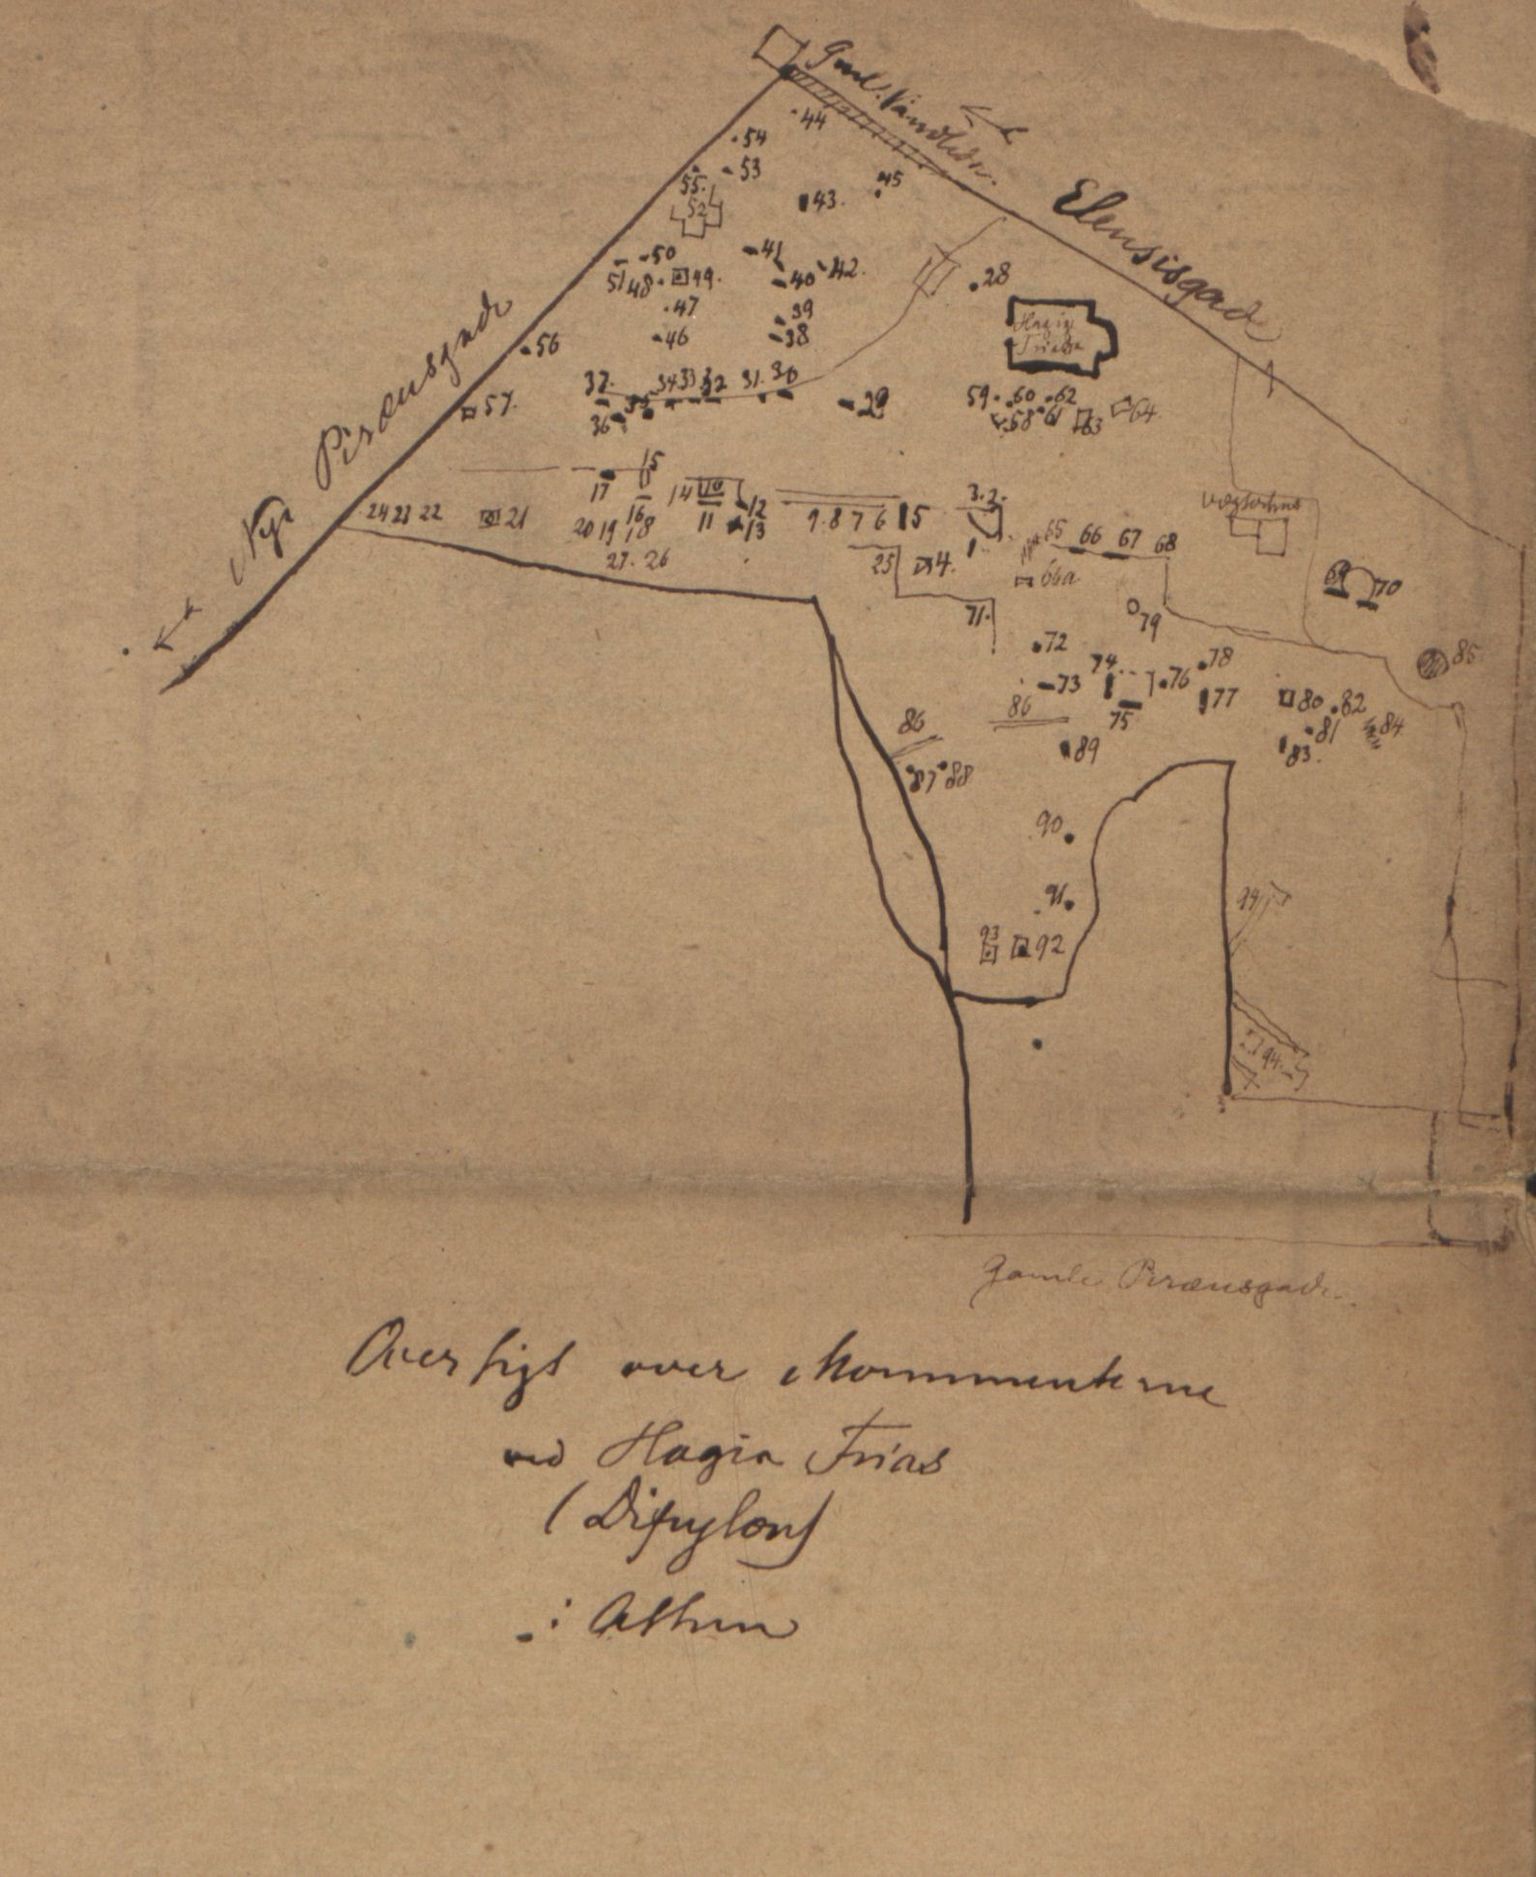 Gml. Vandledn.
Elensisgade
44
54
53
55.
45
52
43.
50
41
42.
51 48. 49.
40
28
47
39
Hagia
Trias
46
38
56
Nye Piræusgade
57.
37. 34 33 32 31. 30
35
36
29
59. 60 62
58 61 63 64.
15
17
14 10
12
3. 2.
24 23 22
21
16
11
13
9. 8 7 6 5
20 19 18
1
65 66 67 68
27. 26
25 4.
66a
69 70
71.
79
72
85
74. 78
73
76
77
80 82
75
86 86
81 84
83.
89
87 88
90
91
94
93 92
94.
Gamle Piræusgade
Oversigt over Monumenterne
ved Hagia Trias
(Dipylon)
i Athen